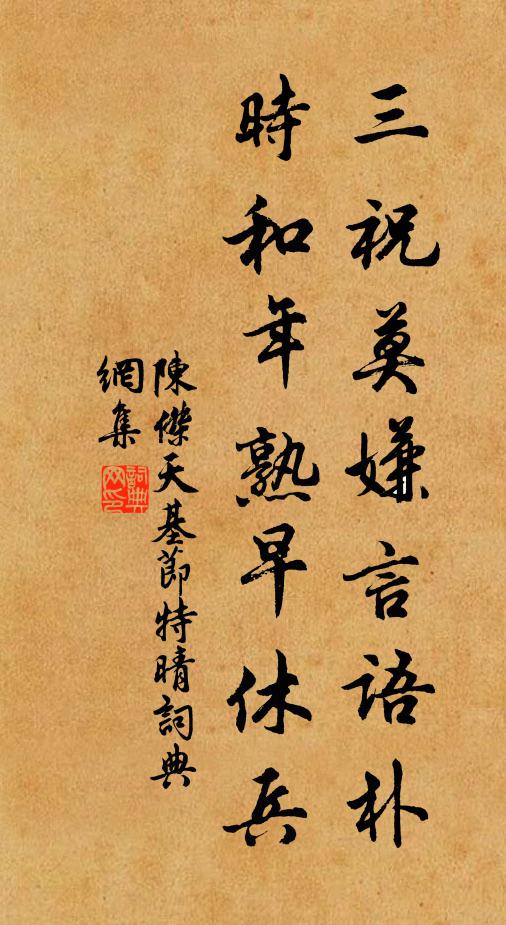 三祝莫嫌言語朴
時和年熟早休兵
陳傑天基節特晴詞典
網集
詞典網印